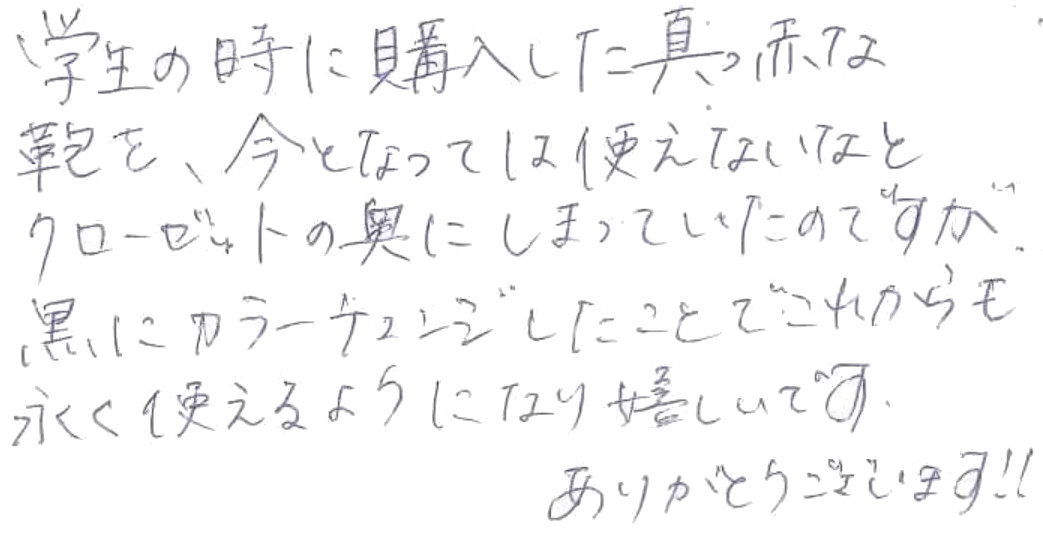 学生の時に購入した真っ赤な
鞄を、今となっては使えないなと
クローゼットの奥にしまっていたのですが、
黒にカラーチェンジしたことでこれからも
永く使えるようになり嬉しいです.
ありがとうございます!!